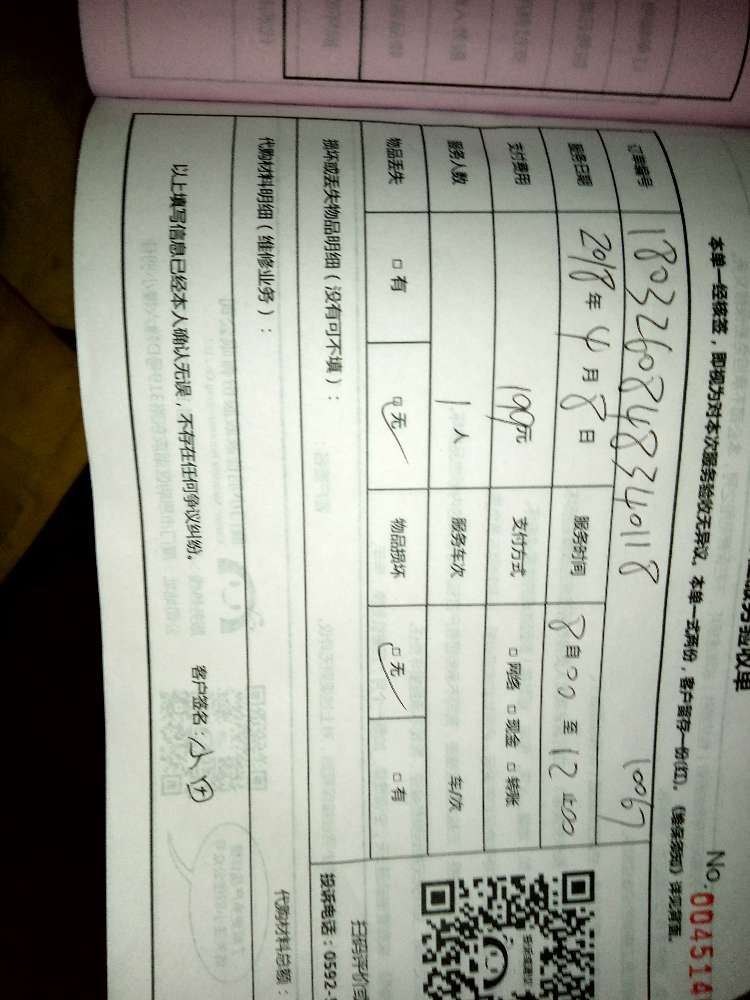 验收单
No.004514
本单一经接签，即视为对本次服务验收无异议。本单一式两份，客户留存一份(红)。
订单编号 18032608348340118 10067
服务日期 2018年4月8日 服务时间 8自00至12止00
支付费用 199元 支付方式 □网络 □现金 □转账
服务人数 1人 服务车次 车/次
物品丢失 □有 □无 物品损坏 □无 □有
损坏或丢失物品明细（没有可不填）：
扫码评价
投诉电话：0592-
代购材料明细（维修业务）：
代购材料总额：
以上填写信息已经本人确认无误，不存在任何争议纠纷。
客户签名：